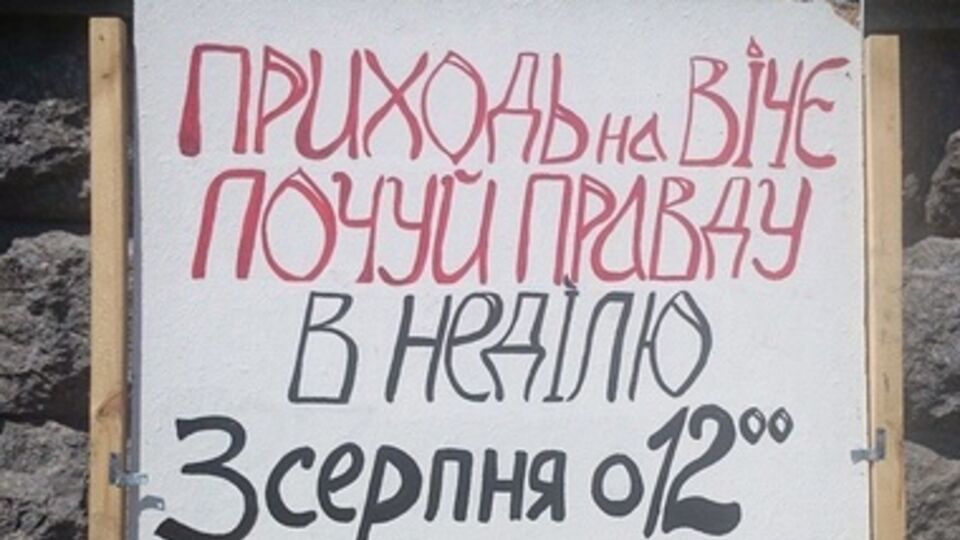 ПРИХОДЬ на ВІЧЄ
ПОЧУЙ ПРАВДУ
В НЕДІЛЮ
3 серпня о 12⁰⁰